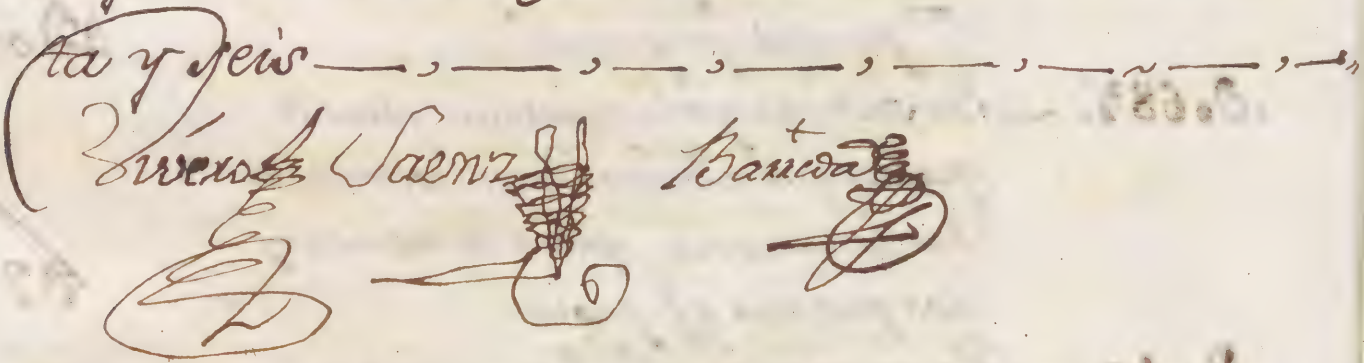 ta y seis
Vivero Saenz Barreda